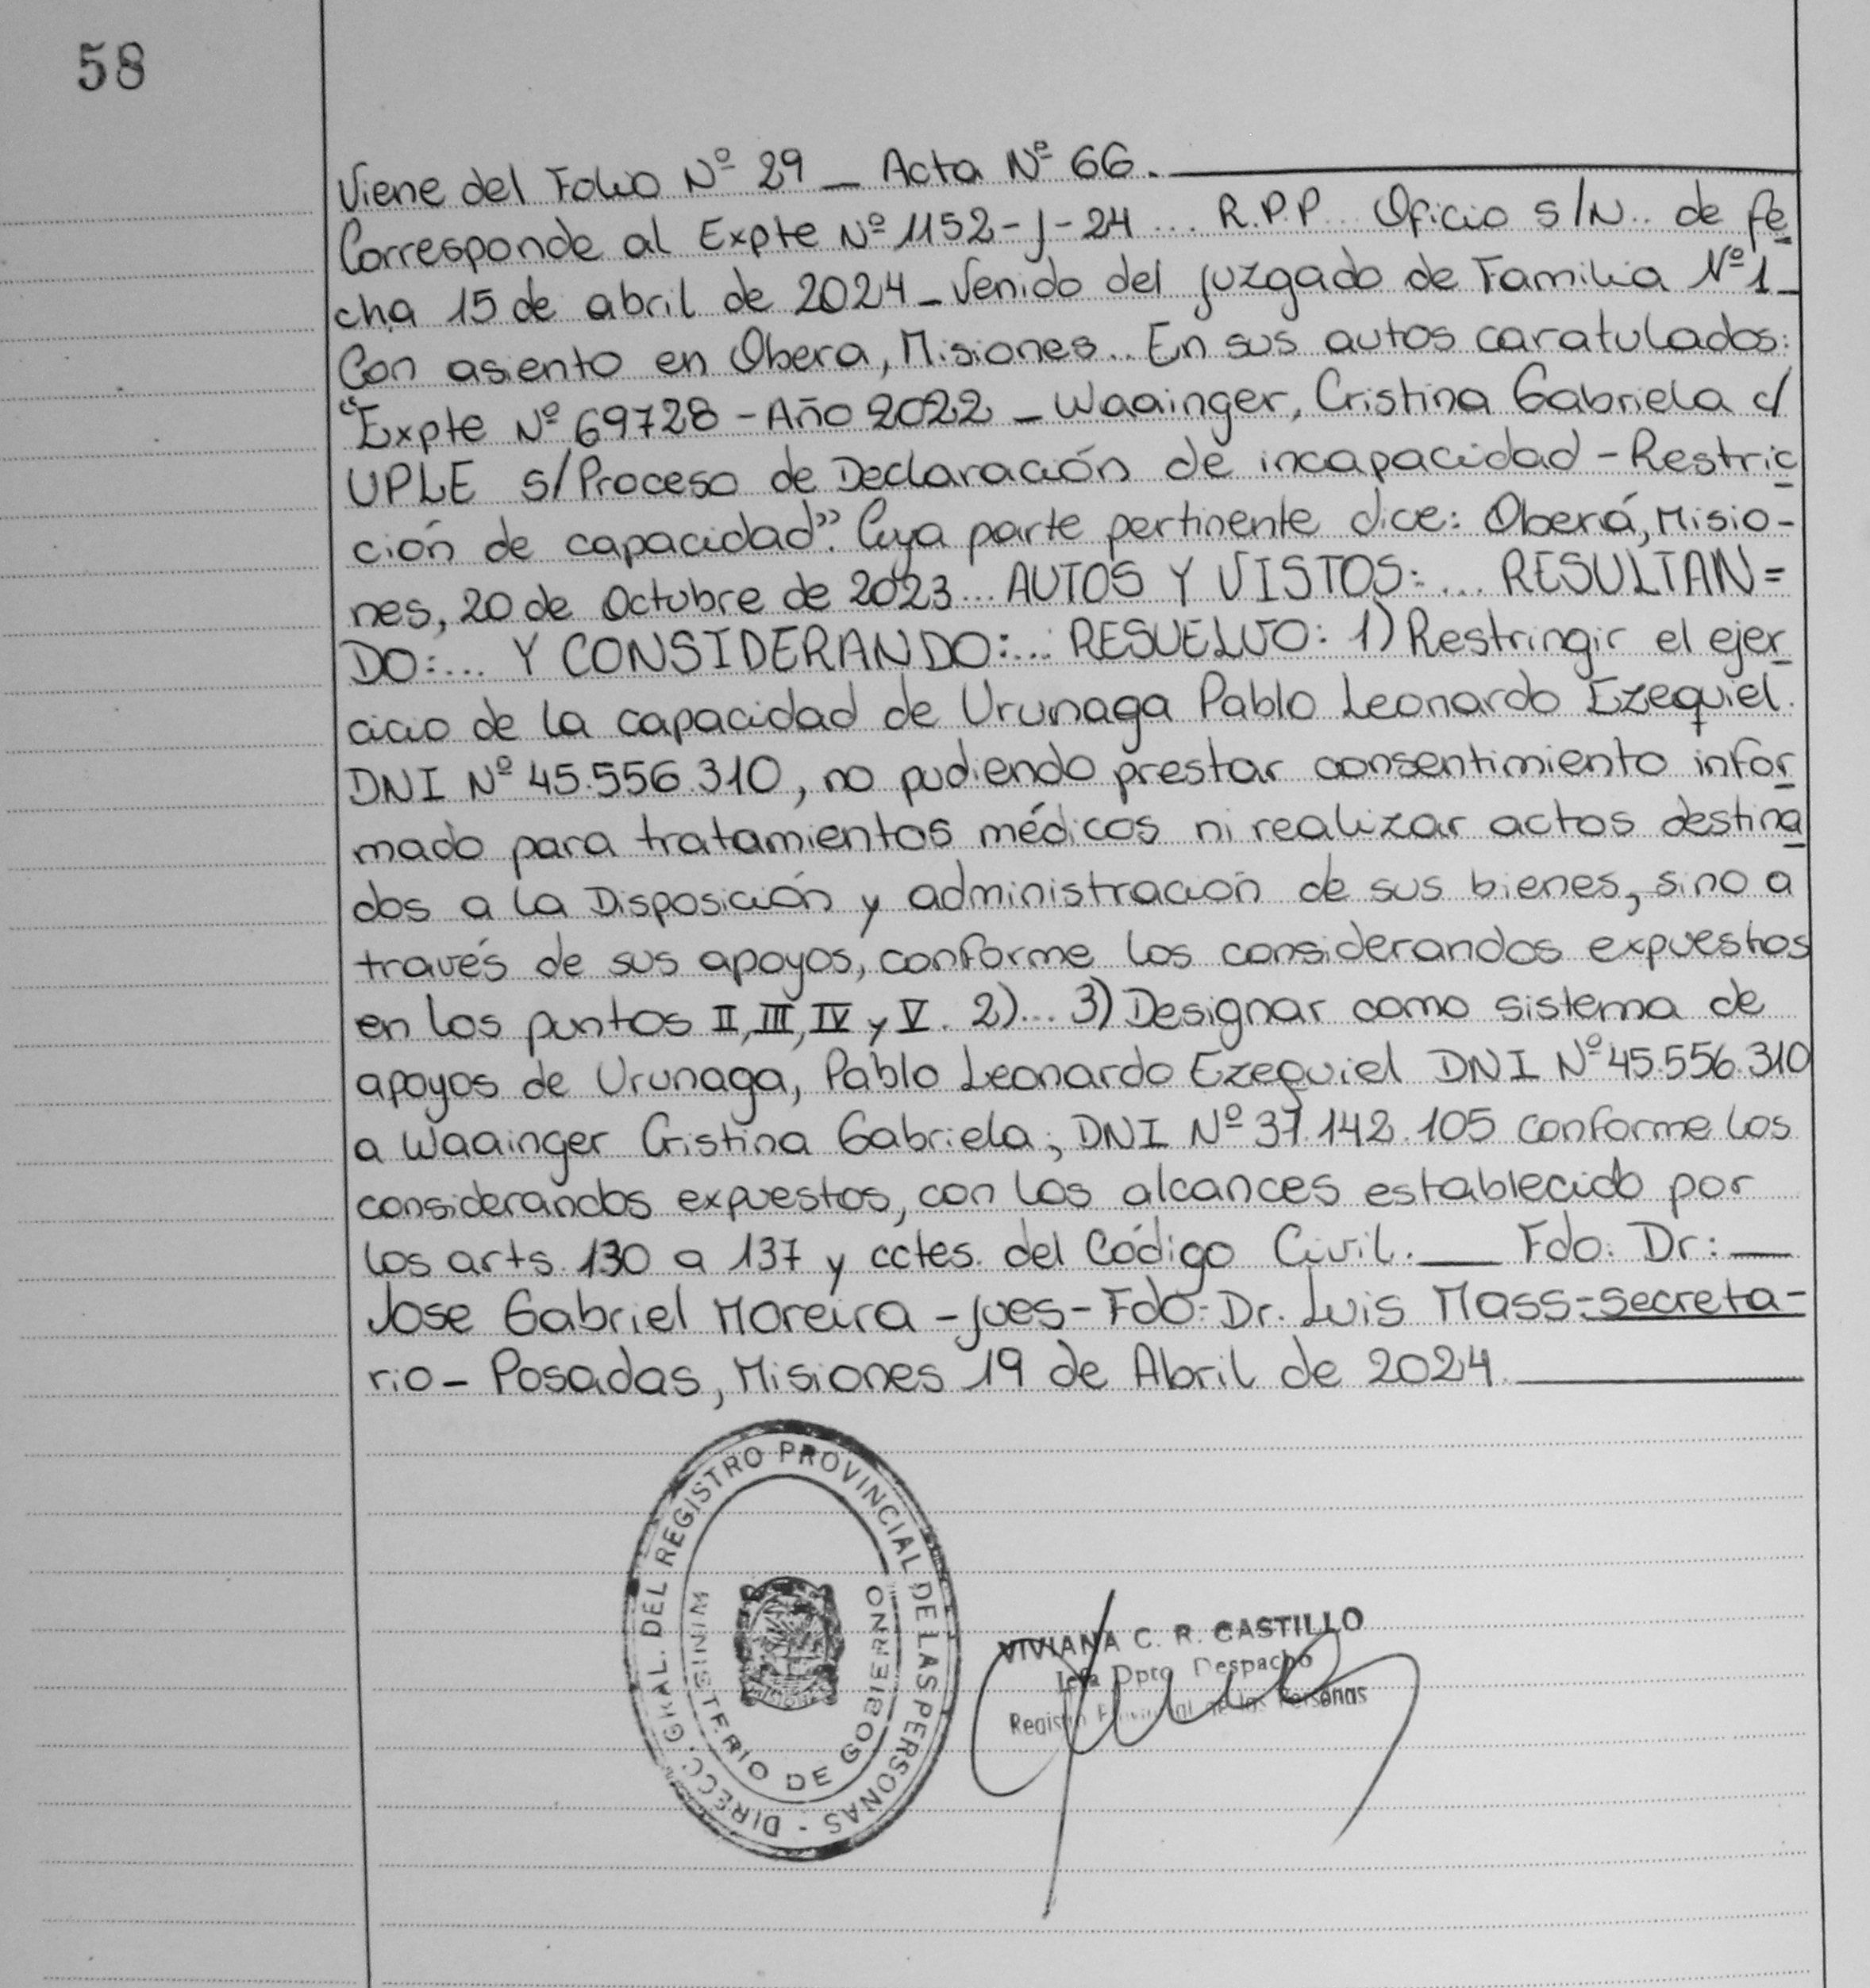 58
Viene del Folio Nº 29 _ Acta Nº 66.
Corresponde al Expte Nº 1152-J-24 ... R.P.P... Oficio s/N.. de fe
cha 15 de abril de 2024 _ Venido del Juzgado de Familia Nº 1 _
Con asiento en Obera, Misiones.. En sus autos caratulados:
"Expte Nº 69728 - Año 2022 _ Waainger, Cristina Gabriela c/
UPLE s/Proceso de Declaración de incapacidad - Restric
ción de capacidad". Cuya parte pertinente dice: Oberá, Misio-
nes, 20 de Octubre de 2023... AUTOS Y VISTOS: ... RESULTAN=
DO:... Y CONSIDERANDO:... RESUELVO: 1) Restringir el ejer
cicio de la capacidad de Urunaga Pablo Leonardo Ezequiel.
DNI Nº 45.556.310, no pudiendo prestar consentimiento infor
mado para tratamientos médicos ni realizar actos destina
dos a la Disposición y administración de sus bienes, sino a
través de sus apoyos, conforme los considerandos expuestos
en los puntos II, III, IV y V. 2)... 3) Designar como sistema de
apoyos de Urunaga, Pablo Leonardo Ezequiel DNI Nº 45.556.310
a Waainger Cristina Gabriela, DNI Nº 37.142.105 conforme los
considerandos expuestos, con los alcances establecido por
los arts. 130 a 137 y cctes. del Código Civil. __ Fdo: Dr: __
Jose Gabriel Moreira - Jues - Fdo: Dr. Luis Mass - Secreta-
rio - Posadas, Misiones 19 de Abril de 2024.
DIRECC. GRAL. DEL REGISTRO PROVINCIAL DE LAS PERSONAS -
MINISTERIO DE GOBIERNO
MISIONES
VIVIANA C. R. CASTILLO
Jefa Dpto Despacho
Registro Provincial de las Personas